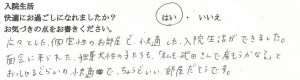 入院生活
快適にお過ごしになれましたか？ はい ・ いいえ
お気づきの点をお書きください。
広々とした、個室性のお部屋で、快適した入院生活ができました。
面会に来られた、独身女性の子たちも、「私も
と
おっしゃるぐらいの快適で、ちょうどいい、部屋だそうです。